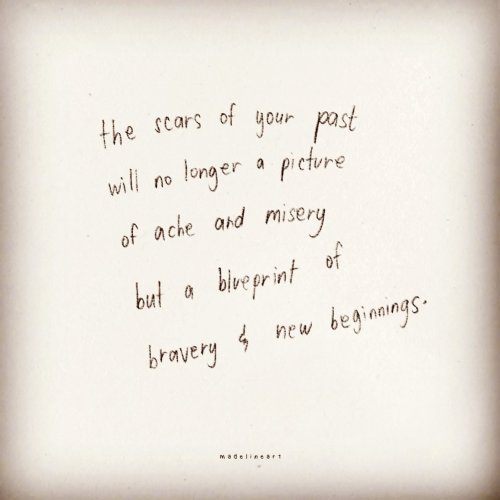 the scars of your past
will no longer a picture
of ache and misery
but a blueprint of
bravery & new beginnings.
madelineart